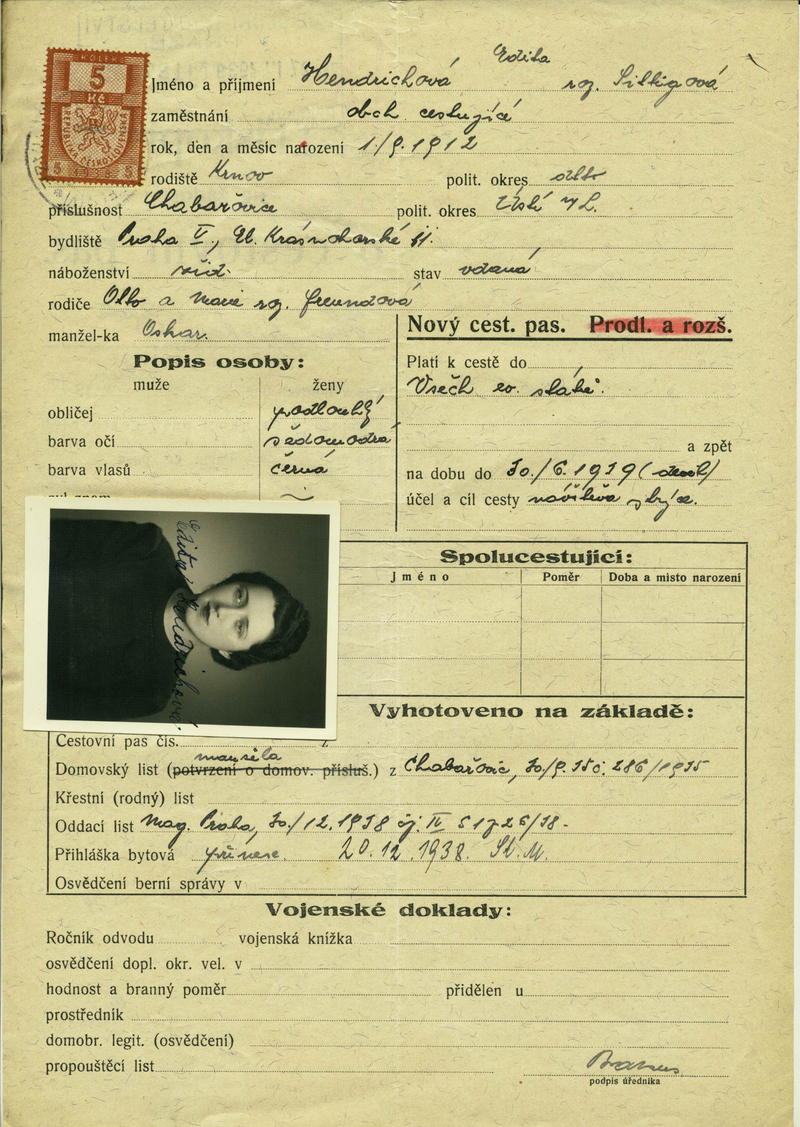 KOLEK
5
Kč
REPUBLIKA ČESKOSLOVENSKÁ
5 1938 5
Edita
Jméno a příjmení Hendrichová roz. Sittigová
zaměstnání obch cestující
rok, den a měsíc narození 1/9. 1912
rodiště Krnov polit. okres
příslušnost Chabařovice polit. okres Ústí n/L.
bydliště Praha V., 11.
náboženství žid. stav vdaná
rodiče Otto a Marie roz. Freundová
manžel-ka Oskar.
Nový cest. pas. Prodl. a rozš.
Popis osoby:
muže ženy
obličej podlouhlý
barva očí šedomodrá
barva vlasů černá
Platí k cestě do
Všech ev. států.
a zpět
na dobu do 30./6. 1939
účel a cíl cesty návštěva
Edita Hendrichová
Spolucestující:
Jméno Poměr Doba a misto narození
Vyhotoveno na základě:
Cestovní pas čís. z
manžela
Domovský list (potvrzení o domov. přísluš.) z Chabařovic, 30/9. 286/1935
Křestní (rodný) list
Oddací list Mag. Praha, 30./12. 1938 čj. IV
Přihláška bytová přinese. 20.12.1938.
Osvědčení berní správy v
Vojenské doklady:
Ročník odvodu vojenská knížka
osvědčení dopl. okr. vel. v
hodnost a branný poměr přidělen u
prostředník
domobr. legit. (osvědčení)
propouštěcí list
podpis úředníka